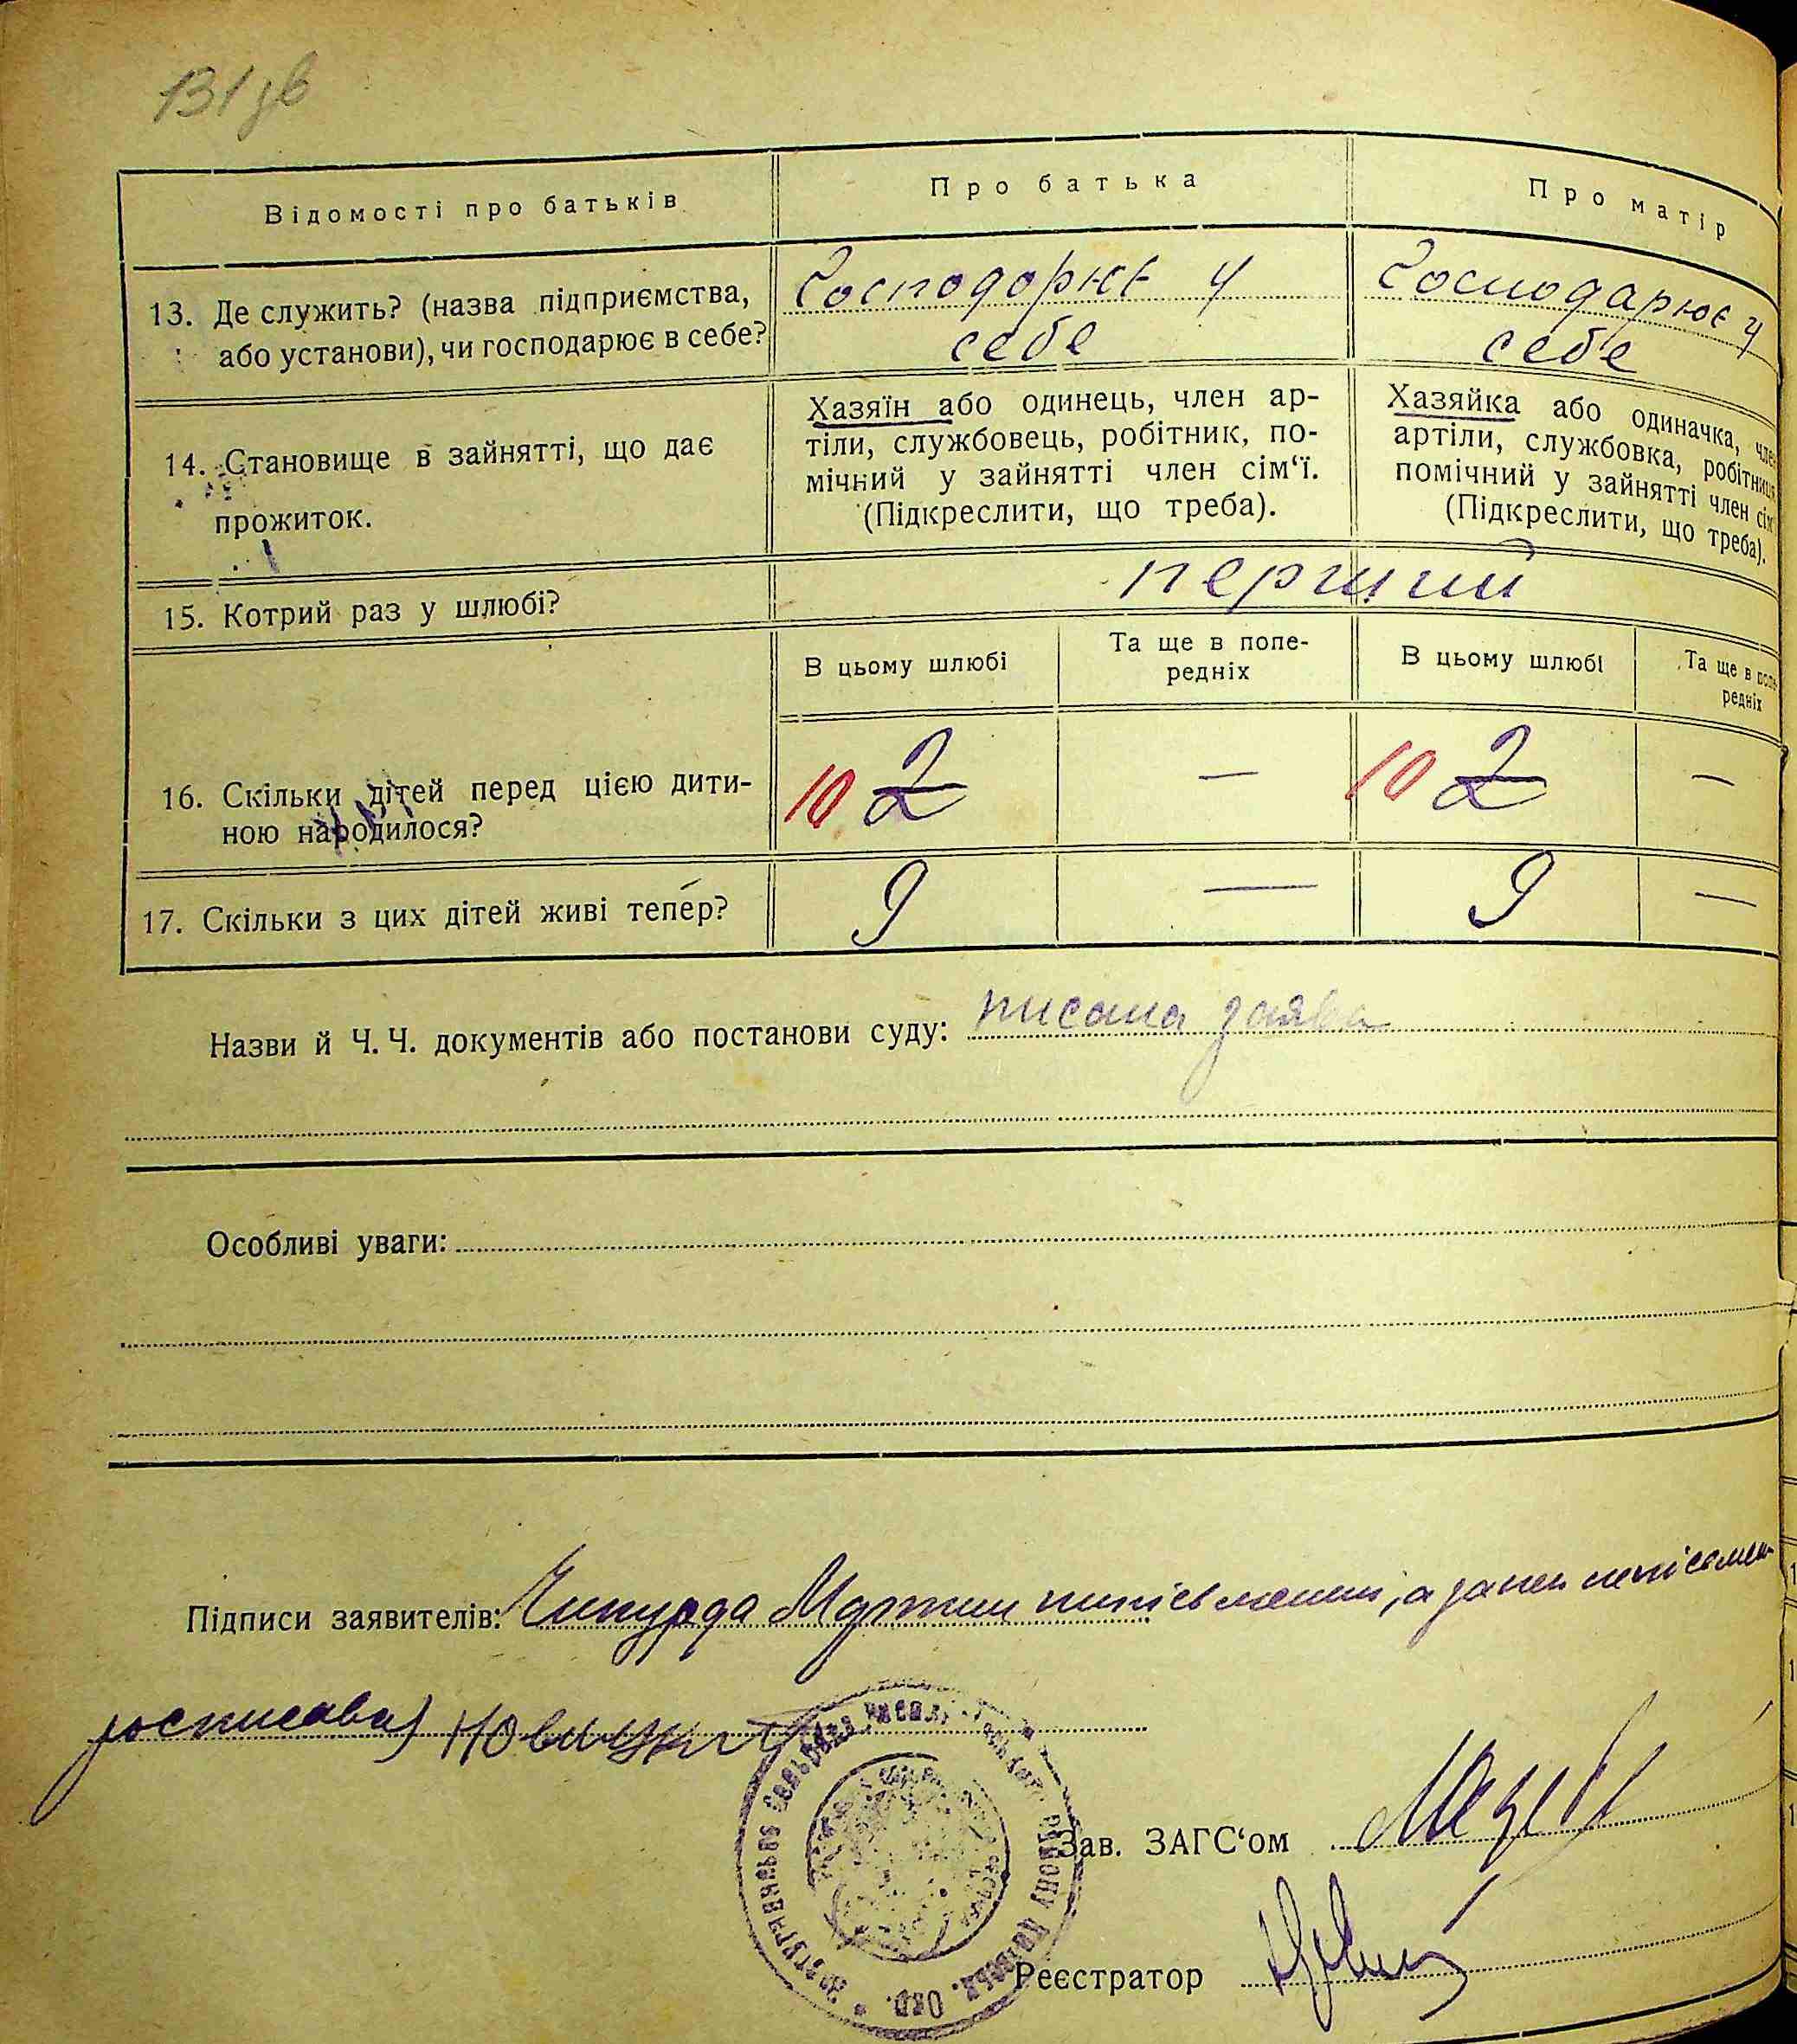 131 зв
Відомості про батьків
Про батька
Про матір
13. Де служить? (назва підприємства,
або установи), чи господарює в себе?
Господорює у
себе
Господарює у
себе
14. Становище в зайнятті, що дає
прожиток.
Хазяїн або одинець, член ар-
тіли, службовець, робітник, по-
мічний у зайнятті член сім‘ї.
(Підкреслити, що треба).
Хазяйка або одиначка, член
артіли, службовка, робітниця
помічний у зайнятті член сім
(Підкреслити, що треба).
15. Котрий раз у шлюбі?
перший
В цьому шлюбі
Та ще в попе-
редніх
В цьому шлюбі
Та ще в попе-
редніх
16. Скільки дітей перед цією дити-
ною народилося?
10 2
—
10 2
—
17. Скільки з цих дітей живі тепер?
9
—
9
—
Назви й Ч. Ч. документів або постанови суду: писана заява
Особливі уваги:
Підписи заявителів: Чикурда Мартин а за
росписавсь Новицкий
Зав. ЗАГС‘ом
Реєстратор